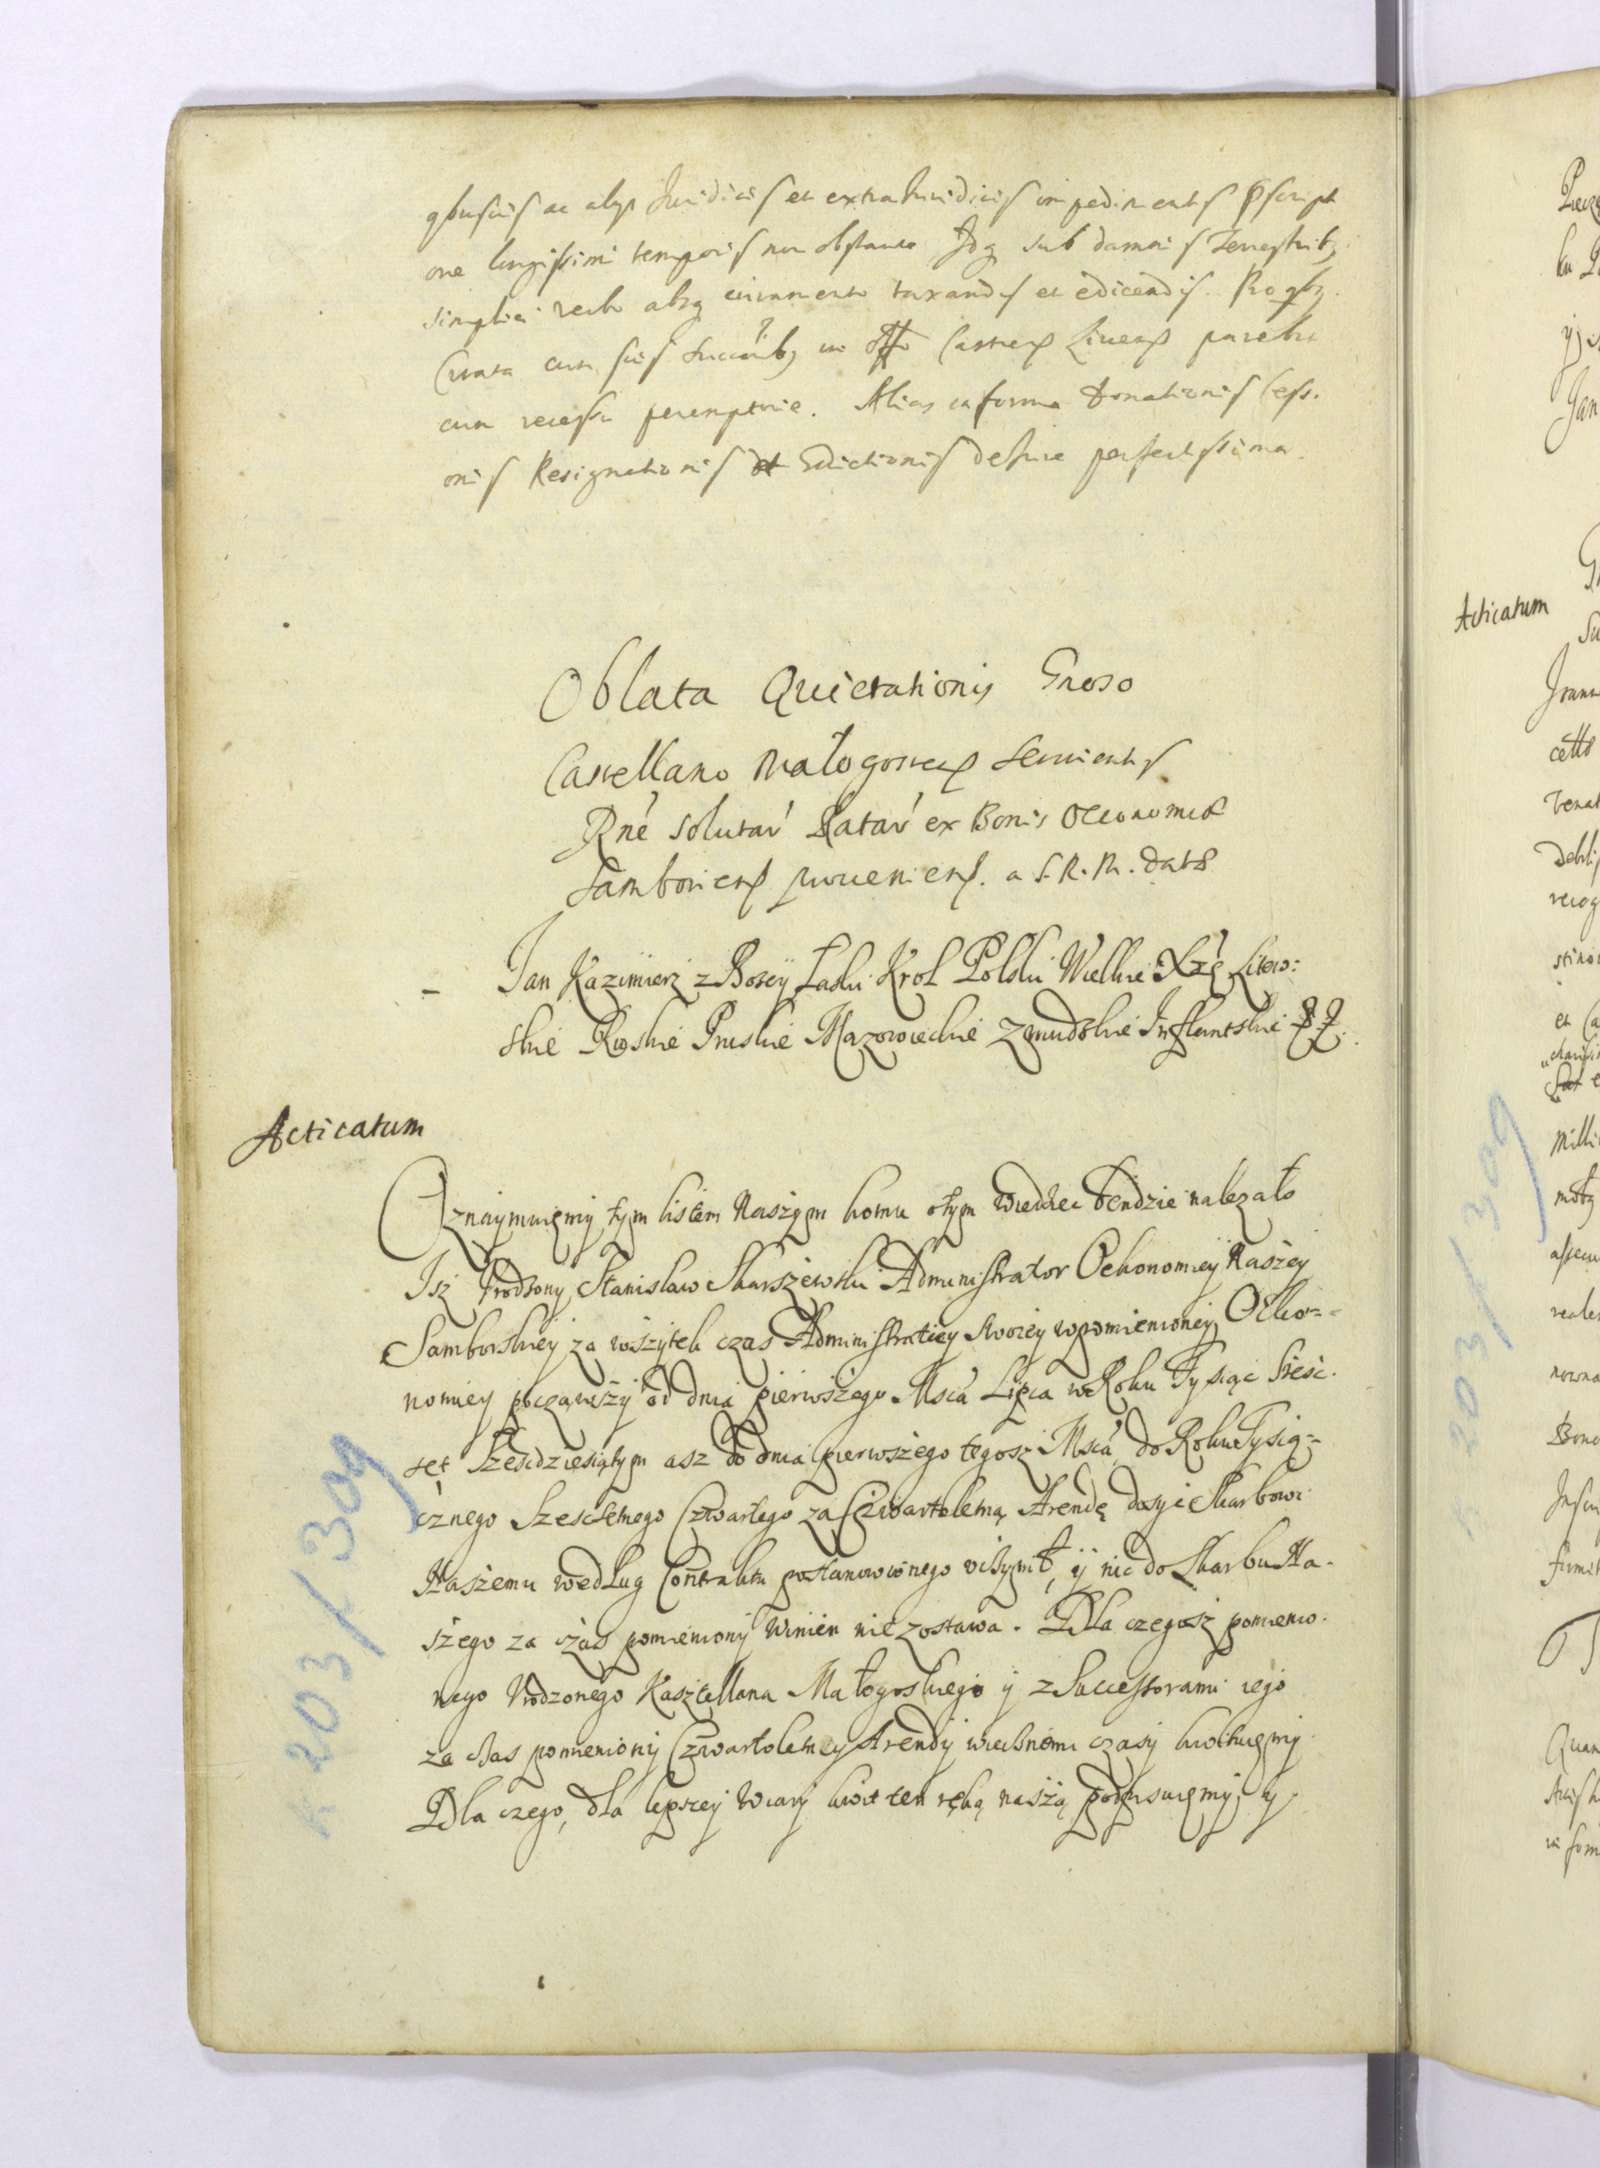 ac alys Juridicis et extraJuridicis impedimentis pscripti
one longissimi temporis non obstante Idq sub damnis Terrestribq
simplici verbo absq iuramento taxandis et edicendis. Pro qbq
Citata cum suis Succribq in Offo Castren Liven parebit
cum recessu peremptorie. Alias in forma Donationis Cess.
onis Resignationis et Edictionis desuper perfectissima.
Oblata Quietationis Gnoso
Castellano Małogosten servients
Rne solutar Ratar ex Bonis Oeconomiae
Samborien provenien. a S. R. M. data
Jan Kazimierz z Bozey Łaski Krol Polski Wielkie Xżę Litew:
skie Ruskie Pruskie Mazowieckie Zmudzkie Inflantskie
Acticatum
Oznaymuięmy tym listem Naszym komu otym wiedziec bendzie nalezało
Isz Vrodzony Stanisław Skarszewski Administrator Oekonomiey Naszey
Samborskiey za wszytek czas Administratiey Swoiey wpomienioney Oeko=
nomiey począwszy od dnia pierwszego Msca Lipca w Roku Tysiąc Szesc.
set Szescdziesiątym asz do dnia pierwszego tegosz Msca do Roku Tysią=
cznego Szescsetnego Czwartego za Czwartoletnią Arendę dosyc Skarbowi
Naszemu według Contraktu postanowionego vczynił, y nic do Skarbu Na-
szego za czas pomieniony winien nie zostawa. Dla czegosz pomienio-
nego Vrodzonego Kasztellana Małogoskiego y z Successorami iego
za czas pomieniony Czwartoletniey Arendy wiecznemi czasy kwituięmy
Dla czego, dla lepszey wiary kwit ten ręką naszą podpisuięmy, y
203/309
Acticatum
203/309